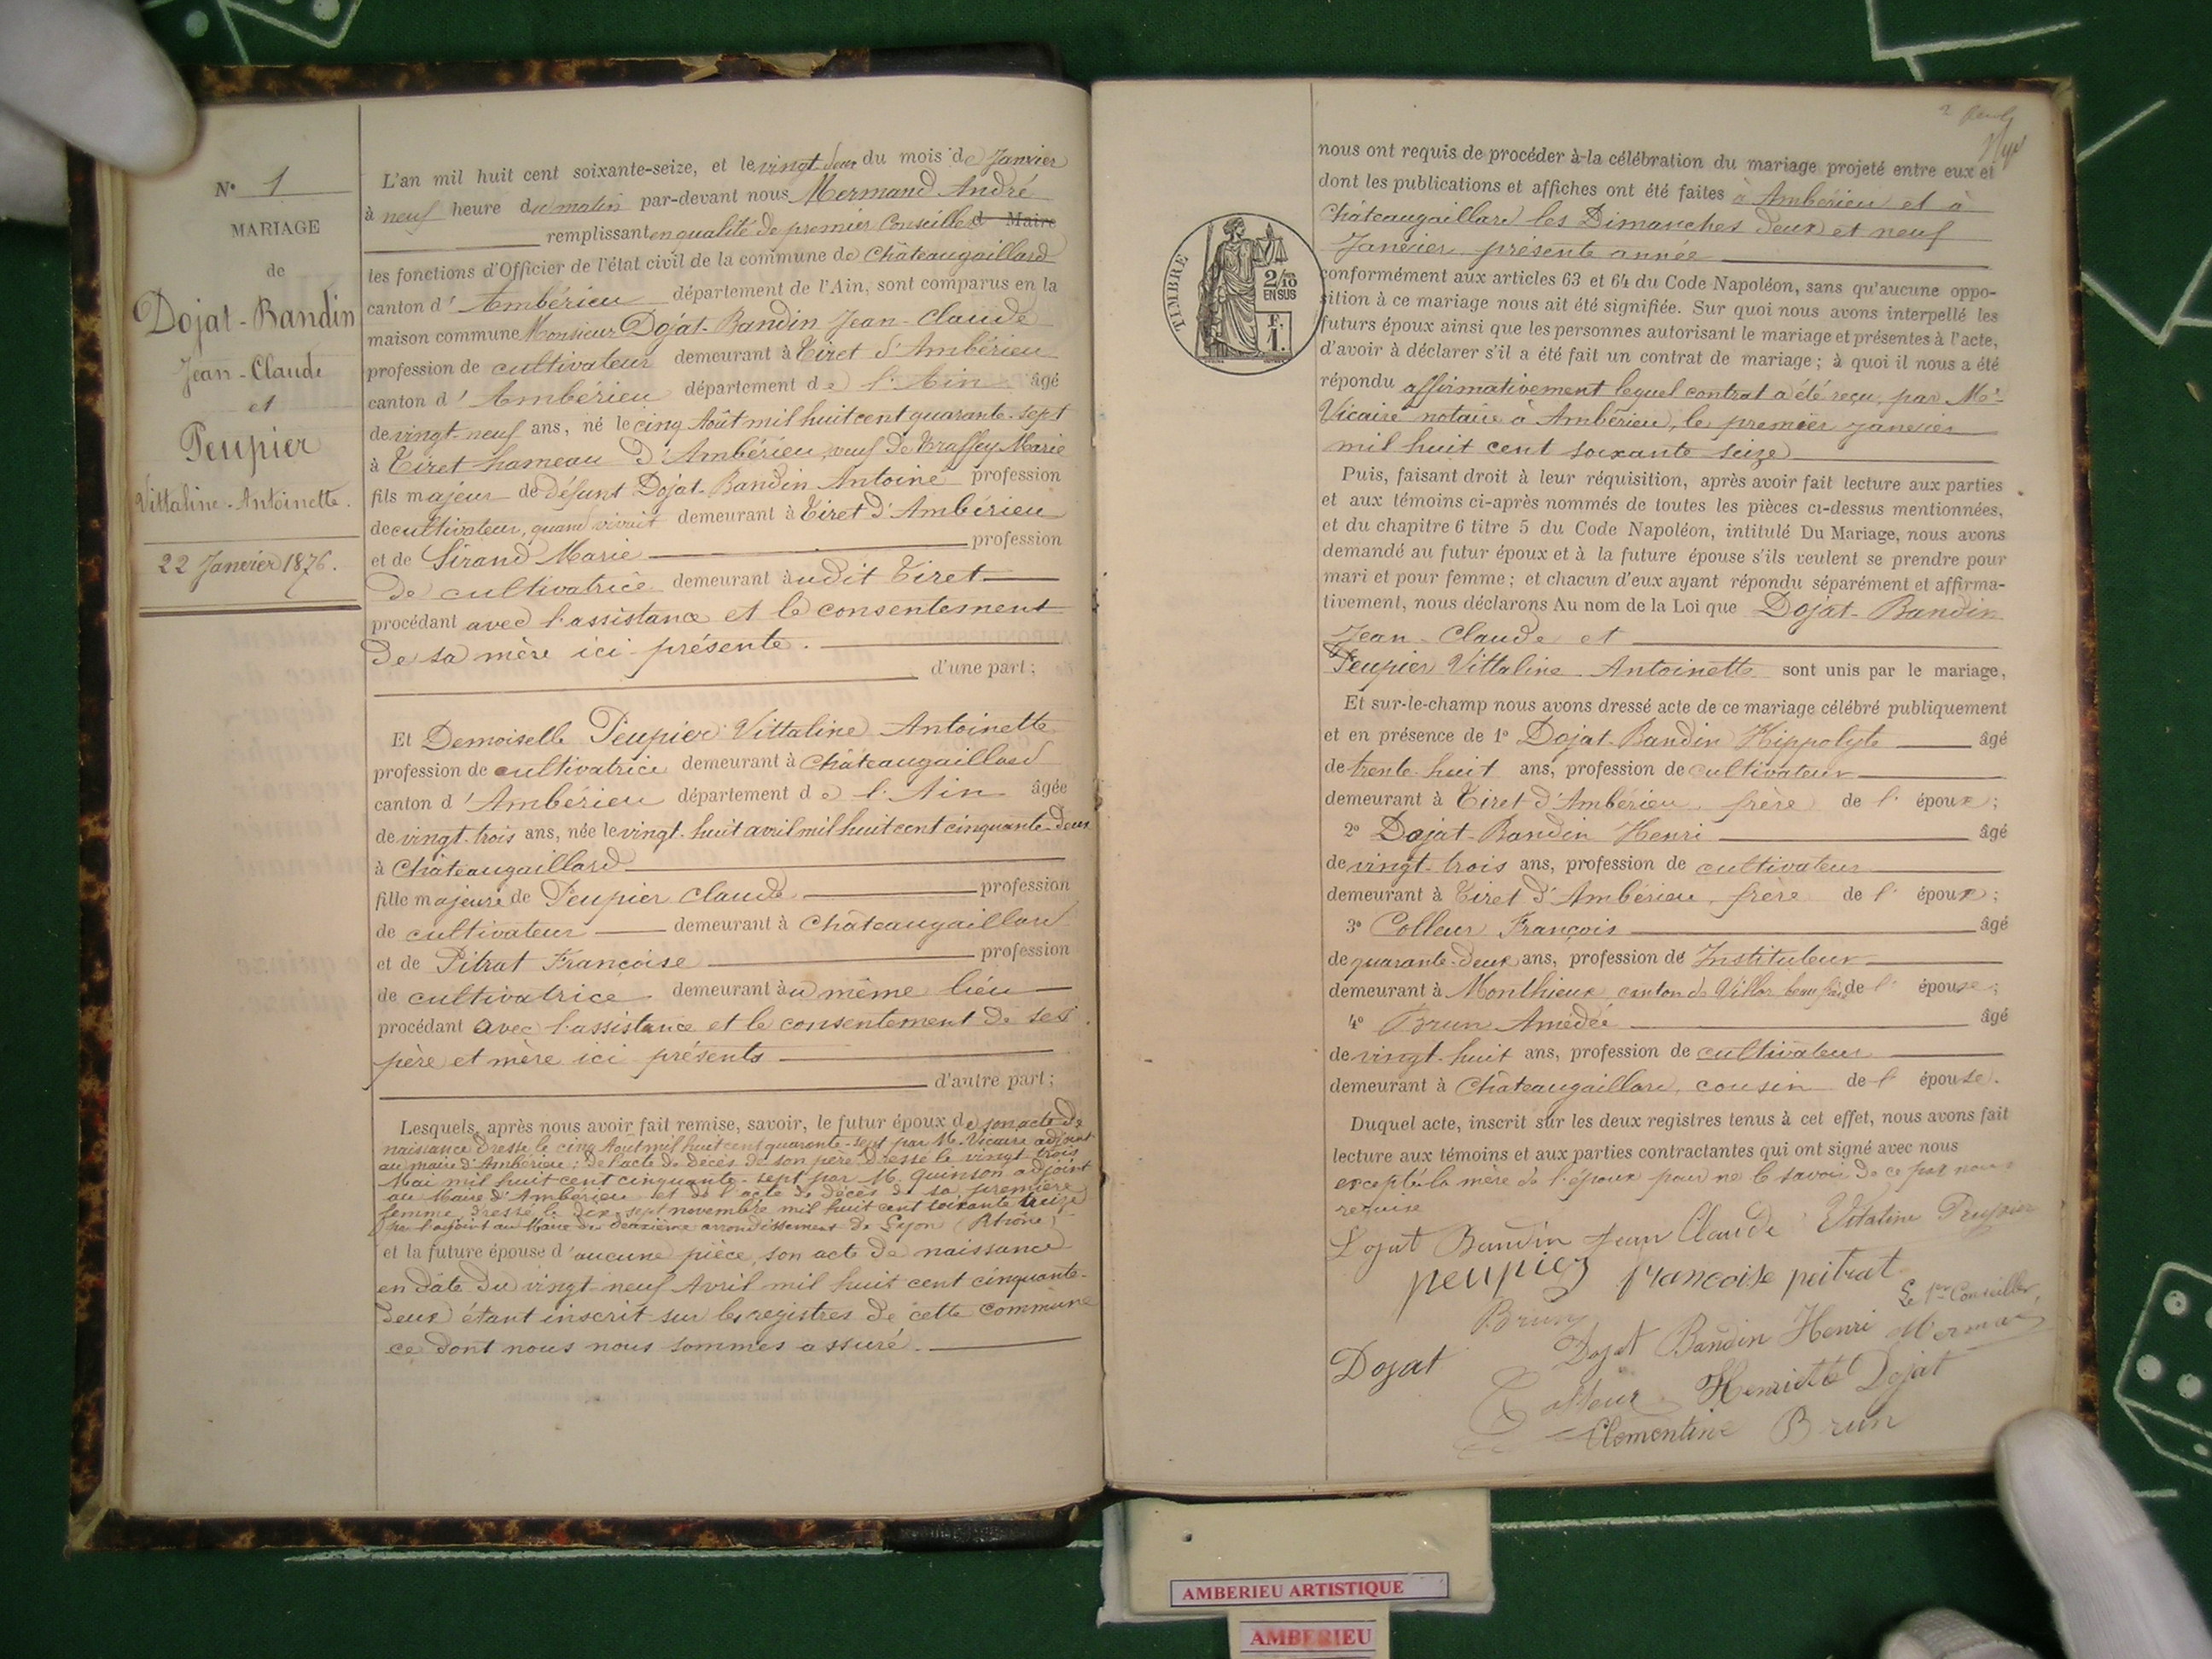 N° 1
MARIAGE
de
Dojat-Bandin
Jean-Claude
et
Peupier
Vittaline-Antoinette.
22 Janvier 1876.
L'an mil huit cent soixante-seize, et le vingt deux du mois de Janvier
à neuf heure du matin par-devant nous Mermand André
remplissant en qualité de premier Conseiller d Maire
les fonctions d'Officier de l'état civil de la commune de Châteaugaillard
canton d'Ambérieu département de l'Ain, sont comparus en la
maison commune Monsieur Dojat-Bandin Jean-Claude
profession de cultivateur demeurant à Tiret d'Ambérieu
canton d'Ambérieu département de l'Ain âgé
de vingt-neuf ans, né le cinq Août mil huit cent quarante-sept
à Tiret hameau d'Ambérieu, veuf de Traffey Marie
fils majeur de défunt Dojat-Bandin Antoine profession
de cultivateur, quand vivait demeurant à Tiret d'Ambérieu
et de Sirand Marie profession
de cultivatrice demeurant audit Tiret
procédant avec l'assistance et le consentement
de sa mère ici présente.
d'une part;
Et Demoiselle Peupier Vittaline Antoinette
profession de cultivatrice demeurant à Châteaugaillard
canton d'Ambérieu département de l'Ain âgée
de vingt-trois ans, née le vingt-huit avril mil huit cent cinquante-deux
à Châteaugaillard
fille majeure de Peupier Claude profession
de cultivateur demeurant à Châteaugaillard
et de Pitrat Françoise profession
de cultivatrice demeurant au même lieu
procédant avec l'assistance et le consentement de ses
père et mère ici présents
d'autre part;
Lesquels, après nous avoir fait remise, savoir, le futur époux de son acte de
naissance dressé le cinq Août mil huit cent quarante-sept par M. Vicaire adjoint
au maire d'Ambérieu; de l'acte de décès de son père dressé le vingt trois
Mai mil huit cent cinquante-sept par M. Quinson adjoint
au Maire d'Ambérieu et de l'acte de décès de sa première
femme, dressé le dix-sept novembre mil huit cent soixante treize
par l'adjoint au Maire du deuxième arrondissement de Lyon (Rhône)
et la future épouse d'aucune pièce, son acte de naissance
en date du vingt-neuf Avril mil huit cent cinquante-
deux étant inscrit sur les registres de cette commune
ce dont nous nous sommes assuré.
nous ont requis de procéder à la célébration du mariage projeté entre eux et
dont les publications et affiches ont été faites à Ambérieu et à
Châteaugaillard les Dimanches deux et neuf
Janvier présente année
conformément aux articles 63 et 64 du Code Napoléon, sans qu'aucune oppo-
sition à ce mariage nous ait été signifiée. Sur quoi nous avons interpellé les
futurs époux ainsi que les personnes autorisant le mariage et présentes à l'acte,
d'avoir à déclarer s'il a été fait un contrat de mariage; à quoi il nous a été
répondu affirmativement lequel contrat a été reçu par Me
Vicaire notaire à Ambérieu, le premier janvier
mil huit cent soixante seize
Puis, faisant droit à leur réquisition, après avoir fait lecture aux parties
et aux témoins ci-après nommés de toutes les pièces ci-dessus mentionnées,
et du chapitre 6 titre 5 du Code Napoléon, intitulé Du Mariage, nous avons
demandé au futur époux et à la future épouse s'ils veulent se prendre pour
mari et pour femme; et chacun d'eux ayant répondu séparément et affirma-
tivement, nous déclarons Au nom de la Loi que Dojat-Bandin
Jean-Claude et
Peupier Vittaline Antoinette sont unis par le mariage,
Et sur-le-champ nous avons dressé acte de ce mariage célébré publiquement
et en présence de 1° Dojat-Bandin Hippolyte âgé
de trente-huit ans, profession de cultivateur
demeurant à Tiret d'Ambérieu, frère de l'époux;
2° Dojat-Bandin Henri âgé
de vingt-trois ans, profession de cultivateur
demeurant à Tiret d'Ambérieu, frère de l'époux;
3° Colleur François âgé
de quarante-deux ans, profession de Instituteur
demeurant à Monthieux, canton de Villars beau frère de l'épouse;
4° Brun Amédée âgé
de vingt-huit ans, profession de cultivateur
demeurant à Châteaugaillard, cousin de l'épouse.
Duquel acte, inscrit sur les deux registres tenus à cet effet, nous avons fait
lecture aux témoins et aux parties contractantes qui ont signé avec nous
excepté la mère de l'époux pour ne le savoir de ce par nous
requise
Dojat Bandin Jean Claude Vitaline Peupier
peupier françoise peitrat
Le 1er Conseiller,
Brun
Dojat Bandin Henri Merman
Dojat
Colleur Henriette Dojat
Clémentine Brun
TIMBRE
2/10
EN SUS
F.
1.
AMBERIEU ARTISTIQUE
AMBERIEU